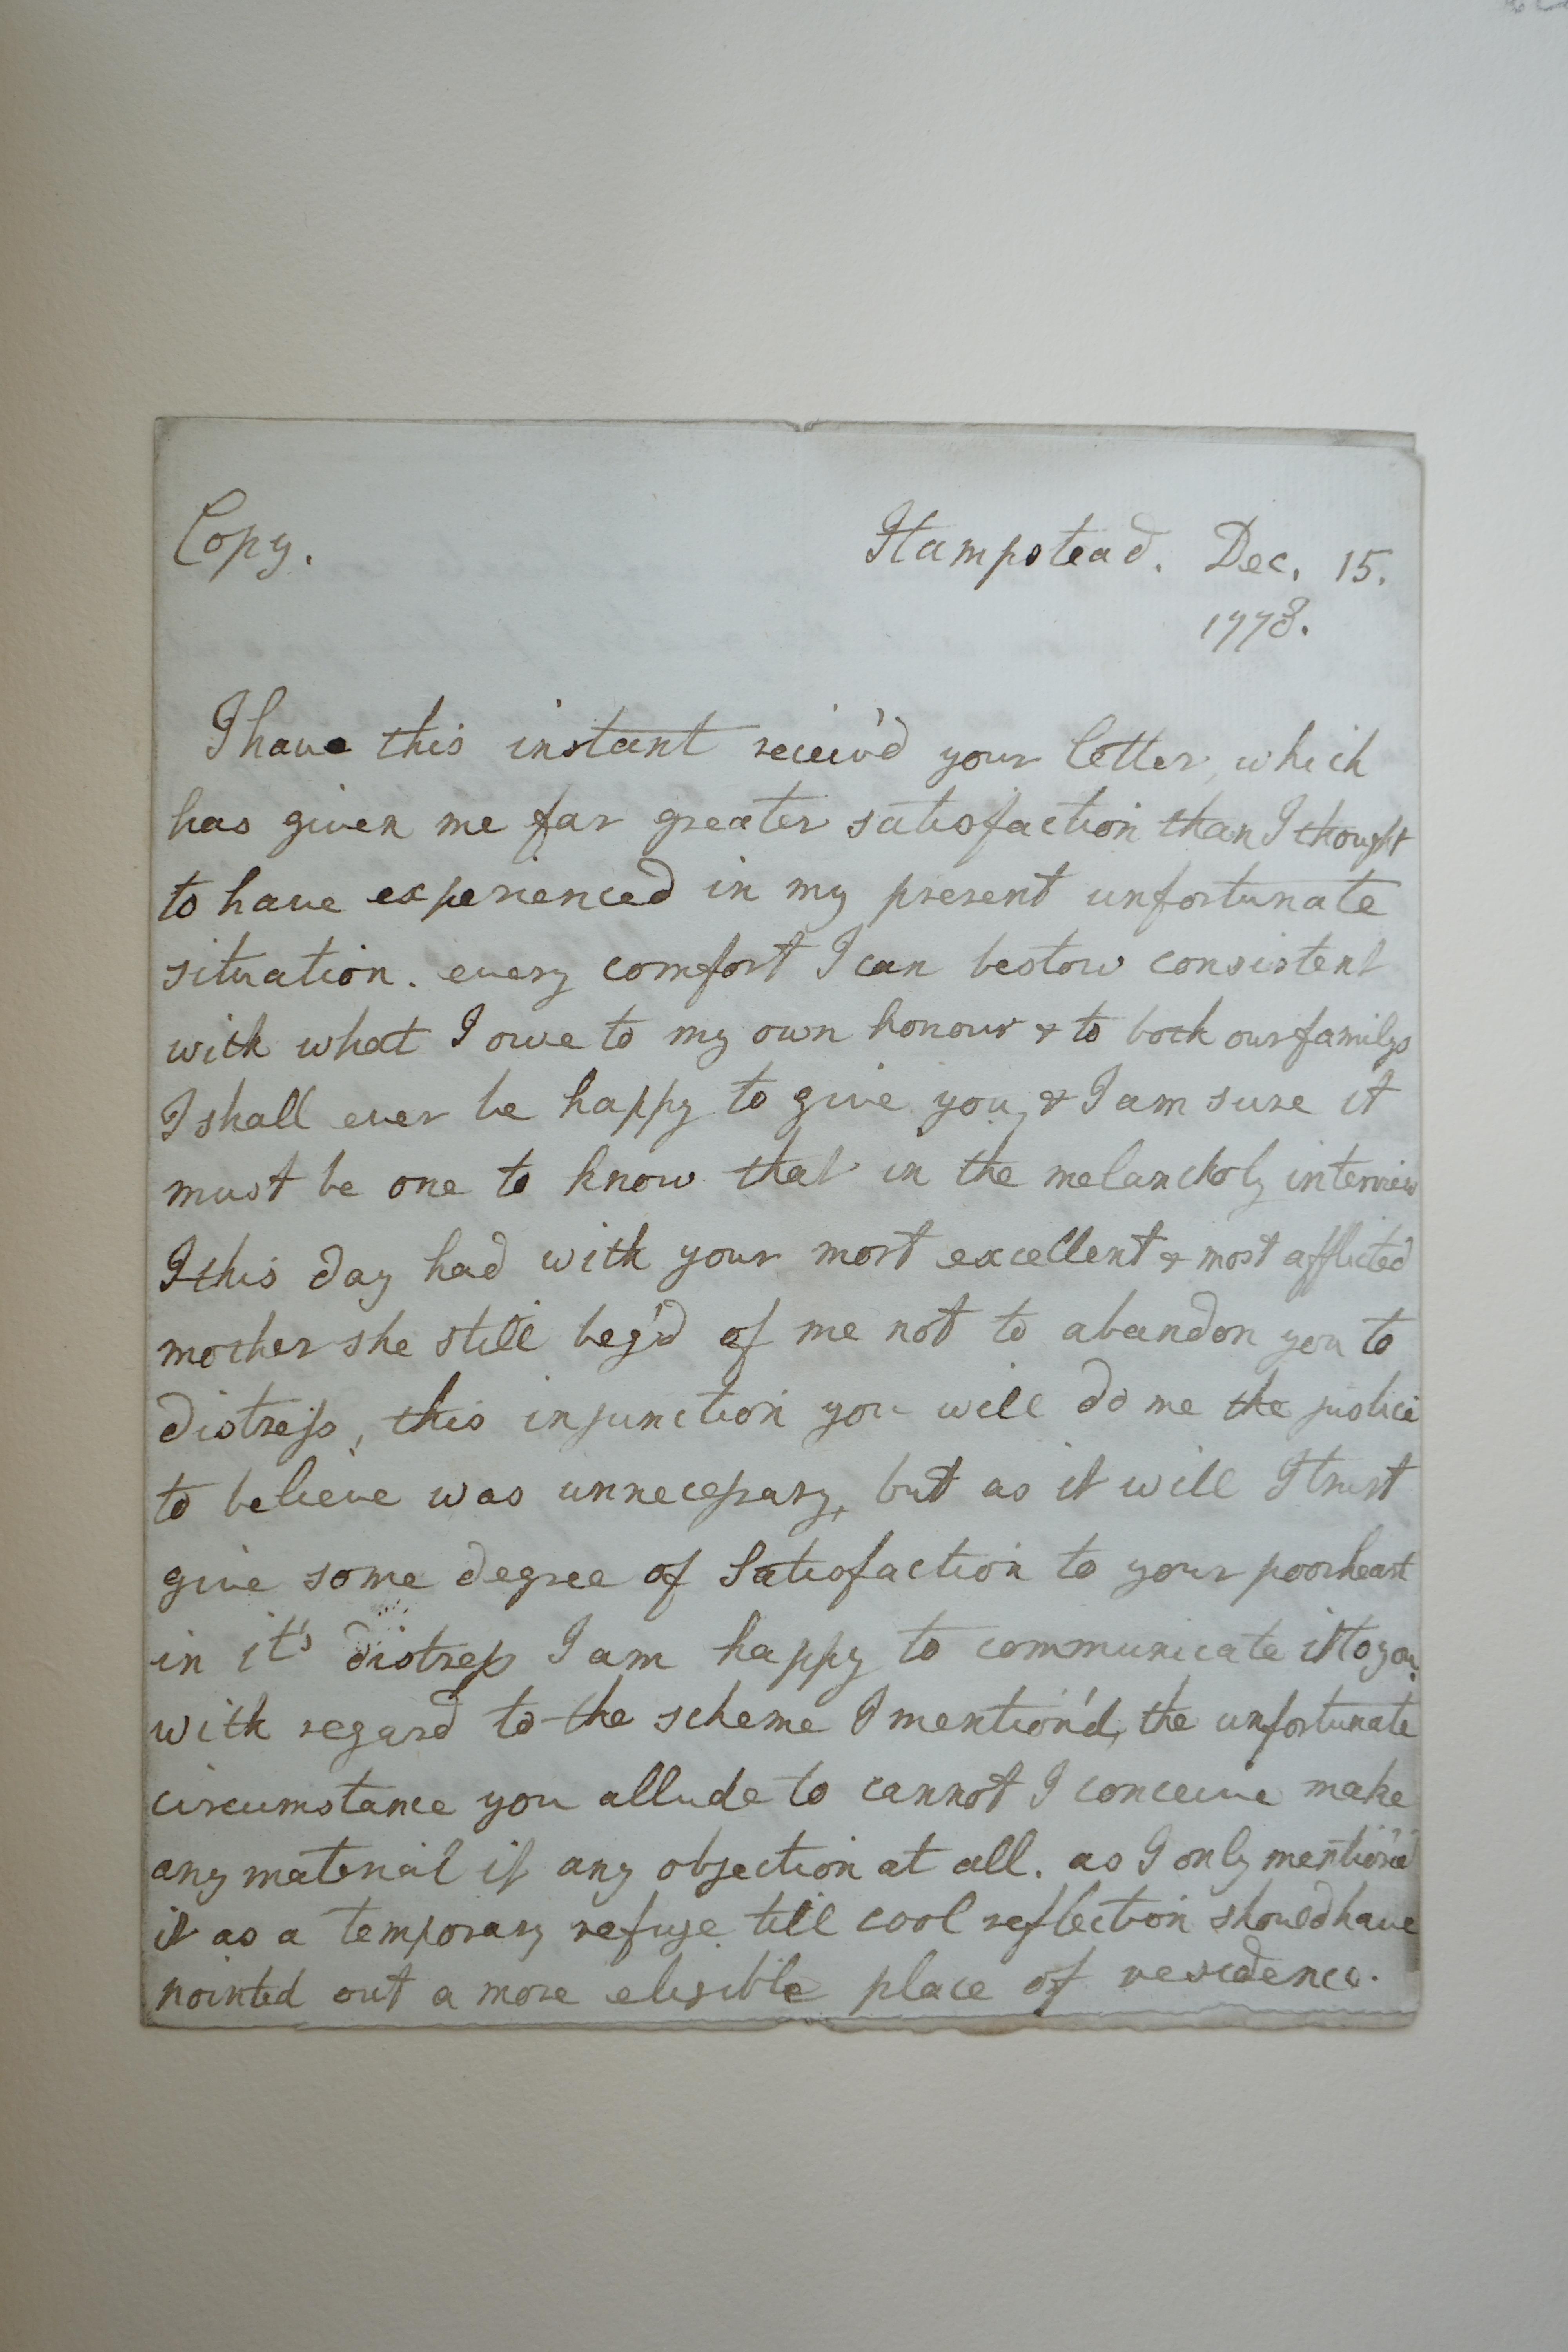 Copy.
Hampstead. Dec. 15.
1778.
I have this instant receiv'd your letter, which
has given me far greater satisfaction than I thought
to have experienced in my present unfortunate
situation. every comfort I can bestow consistent
with what I owe to my own honour & to both our familys
I shall ever be happy to give you, & I am sure it
must be one to know that in the melancholy interview
I this day had with your most excellent & most afflicted
mother she still beg'd of me not to abandon you to
distress, this injunction you will do me the justice
to believe was unnecessary, but as it will I trust
give some degree of Satisfaction to your poor heart
in it's distress I am happy to communicate it to you.
with regard to the scheme I mention'd, the unfortunate
circumstance you allude to cannot I conceive make
any material if any objection at all. as I only mention'd
it as a temporary refuge till cool reflection should have
pointed out a more elegible place of residence.